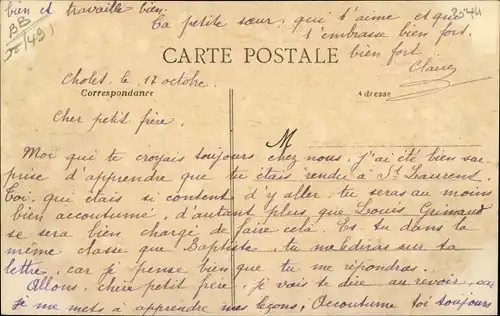 bien et travaille bien.
Ta petite sœur, qui t'aime et que
t'embrasse bien fort,
bien fort.
BB
(49)
CARTE POSTALE
Cholet, le 17 octobre.
Correspondance
Adresse
Cher petit frère,
M
Moi qui te croyais toujours chez nous, j'ai été bien sur
prise d'apprendre que tu étais rendu à St Laurent.
Toi, qui étais si content d'y aller, tu seras au moins
bien accoutumé, d'autant plus que Louis Grimaud
se sera bien chargé de faire cela. Es-tu dans la
même classe que Baptiste, tu me le diras sur ta
lettre, car je pense bien que tu me répondras.
Allons, cher petit frère, je vais te dire au revoir, car
je me mets à apprendre mes leçons, Accoutume toi toujours